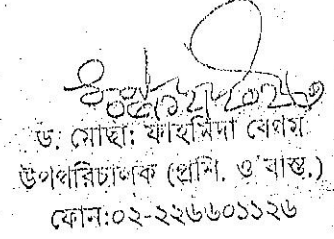 ড. মোছা: ফাহমিদা বেগম
উপপরিচালক (প্রশি. ও বাস্ত.)
ফোন:০২-২২৬৬০১১২৬